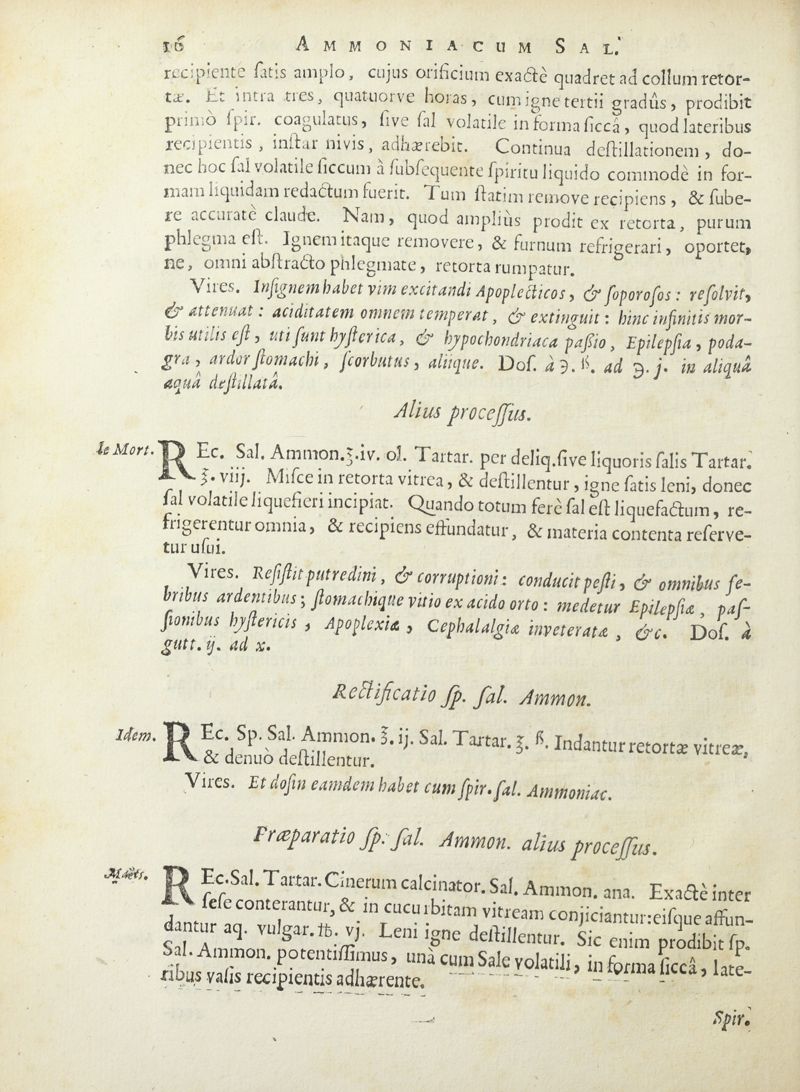 16 AMMONIACUM SAL.
recipiente ſatis amplo, cujus orificium exactè quadret ad collum retor-
tæ. Et intra tres, quatuorve horas, cum igne tertii gradûs, prodibit
primò ſpir. coagulatus, ſive ſal volatile in forma ſiccâ, quod lateribus
recipientis, inſtar nivis, adhærebit. Continua deſtillationem, do-
nec hoc ſal volatile ſiccum à ſubſequente ſpiritu liquido commodè in for-
mam liquidam redactum fuerit. Tum ſtatim remove recipiens, & ſube-
re accuratè claude. Nam, quod ampliùs prodit ex retorta, purum
phlegma eſt. Ignem itaque removere, & furnum refrigerari, oportet,
ne, omni abſtracto phlegmate, retorta rumpatur.
Vires. Inſignem habet vim excitandi Apoplecticos, & ſoporoſos: reſolvit,
& attenuat: aciditatem omnem temperat, & extinguit: hinc infinitis mor-
bis utilis eſt, uti ſunt hyſterica, & hypochondriaca paßio, Epilepſia, poda-
gra, ardor ſtomachi, ſcorbutus, aliique. Doſ. à ℈. ß. ad ℈. j. in aliquâ
aquâ deſtillatâ.
Alius proceſſus.
le Mort. REc. Sal. Ammon. ℥. iv. ol. Tartar. per deliq. ſive liquoris ſalis Tartar.
℥. viij. Miſce in retorta vitrea, & deſtillentur, igne ſatis leni, donec
ſal volatile liquefieri incipiat. Quando totum ferè ſal eſt liquefactum, re-
frigerentur omnia, & recipiens effundatur, & materia contenta reſerve-
tur uſui.
Vires. Reſiſtit putredini, & corruptioni: conducit peſti, & omnibus fe-
bribus ardentibus; ſtomachique vitio ex acido orto: medetur Epilepſiæ, paſ-
ſionibus hyſtericis, Apoplexiæ, Cephalalgiæ inveteratæ, &c. Doſ. à
gutt. ij. ad x.
Rectificatio ſp. ſal. Ammon.
Idem. REc. Sp. Sal. Ammon. ℥. ij. Sal. Tartar. ℥. ß. Indantur retortæ vitreæ,
& denuò deſtillentur.
Vires. Et doſin eamdem habet cum ſpir. ſal. Ammoniac.
Præparatio ſp. ſal. Ammon. alius proceſſus.
REc. Sal. Tartar. Cinerum calcinator. Sal. Ammon. ana. Exactè inter
ſeſe conterantur, & in cucurbitam vitream conjiciantur: eiſque affun-
dantur aq. vulgar. ℔. vj. Leni igne deſtillentur. Sic enim prodibit ſp.
Sal. Ammon. potentiſſimus, unà cum Sale volatili, in forma ſiccâ, late-
ribus vaſis recipientis adhærente.
Spir.